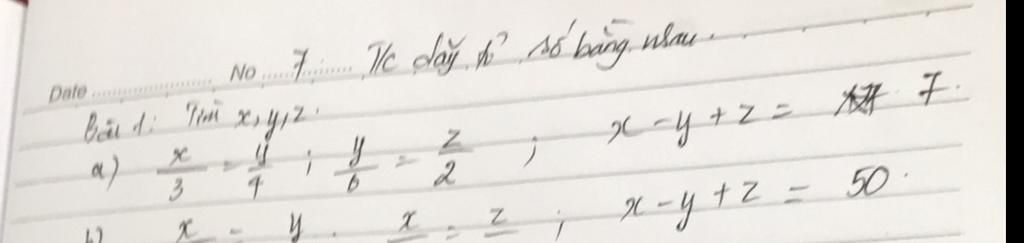 Date ............ No ..... 7 ..... T/c dãy tỉ số bằng nhau.
Bài 1: Tìm x, y, z.
a) x/3 = y/4 ; y/6 = z/2 ; x - y + z = 7.
b) x = y . x = z ; x - y + z = 50.